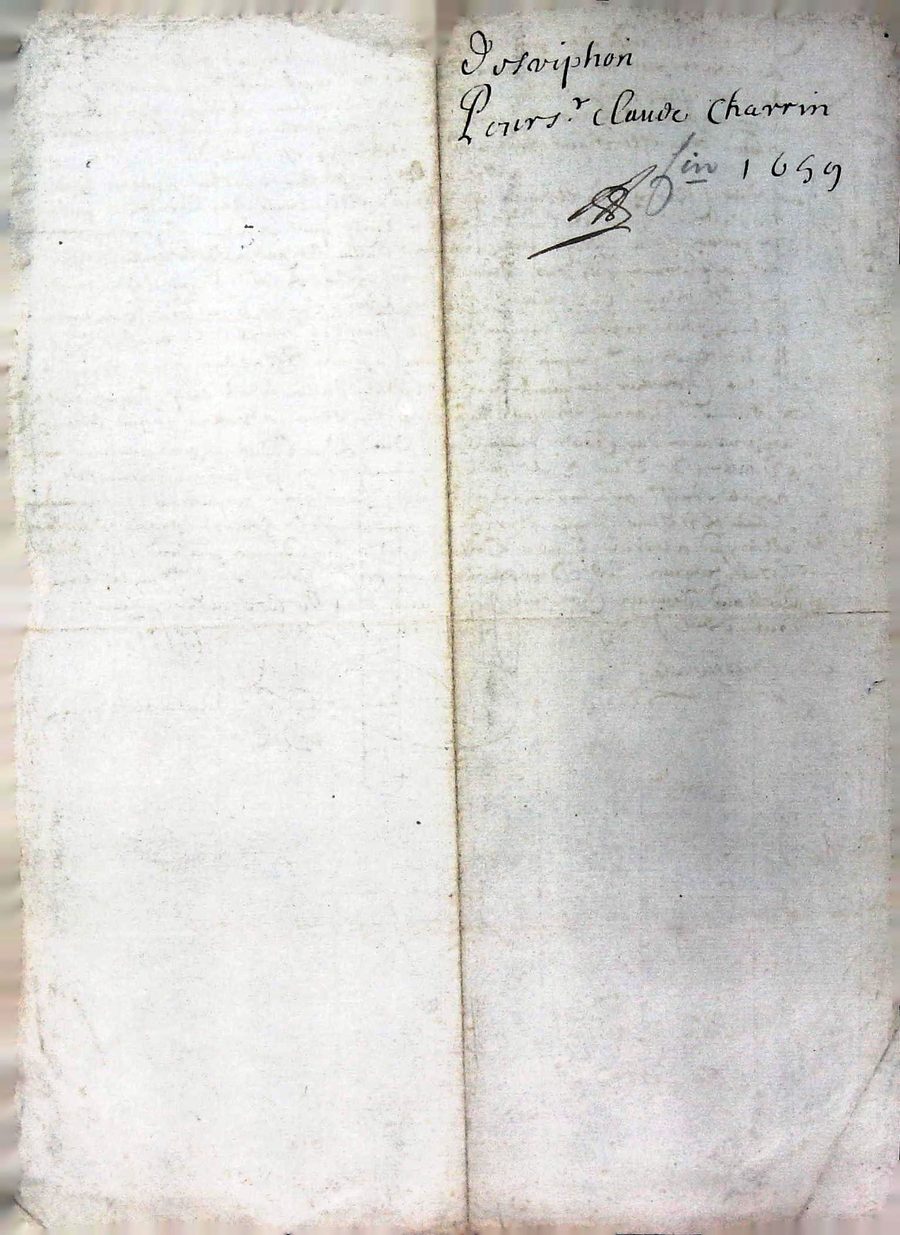 Descriphon
Pour s.r Claude Charrin
fin 1659